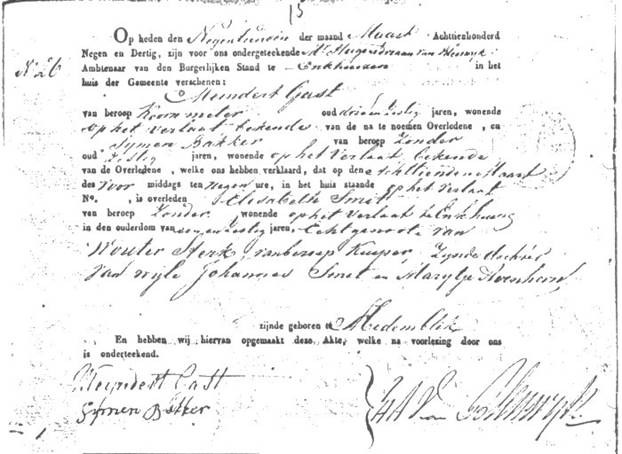 15
Op heden den Negentienden der maand Maart Achttienhonderd
Negen en Dertig, zijn voor ons ondergeteekende Mr
Ambtenaar van den Burgerlijken Stand te Enkhuizen in het
No 26
huis der Gemeente verschenen:
Meindert Gast
van beroep Koornmeter oud jaren, wonende
op het Verlaat bekende van de na te noemen Overledene, en
Symen Bakker van beroep Zonder
oud Zestig jaren, wonende op het Verlaat bekende
van de Overledene, welke ons hebben verklaard, dat op den Achttienden Maart
des Voor middags ten Negen ure, in het huis staande op het Verlaat
No. , is overleden Elisabeth Smet
van beroep Zonder wonende op het Verlaat te Enkhuizen
in den ouderdom van jaren, Echtgenoote van
Wouter Sterk, van beroep Kuiper, Zynde dochter
van wyle Johannes Smet en Marytje
zijnde geboren te Medemblik
En hebben wij hiervan opgemaakt deze Akte, welke na voorlezing door ons
is onderteekend.
Meyndert Gast
Symen Bakker